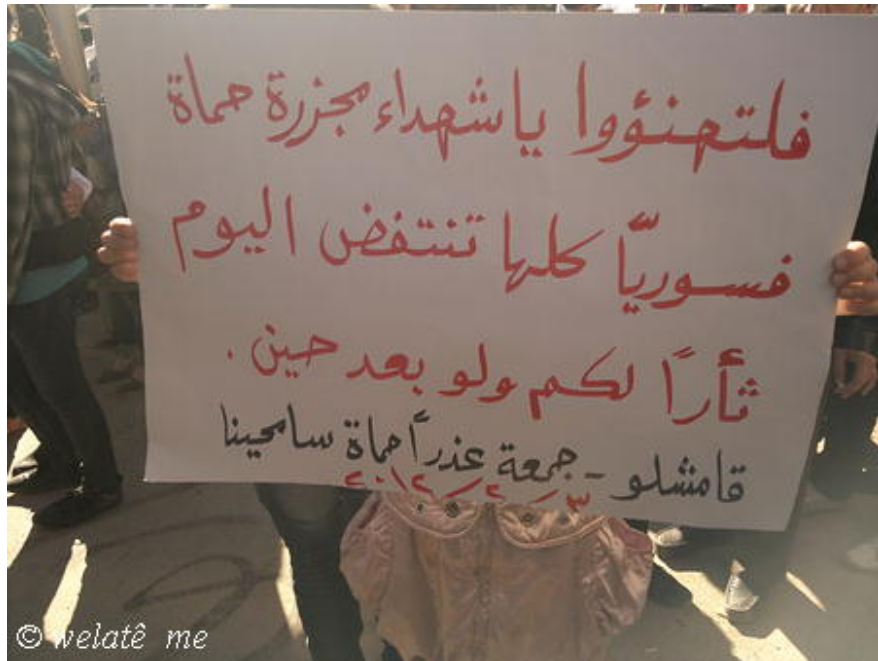 فلتهنؤوا يا شهداء مجزرة حماة
فسوريّا كلها تنتفض اليوم
ثأراً لكم ولو بعد حين .
قامشلو - جمعة عذراً حماة سامحينا
٣/٢/٢٠١٢
© welatê me